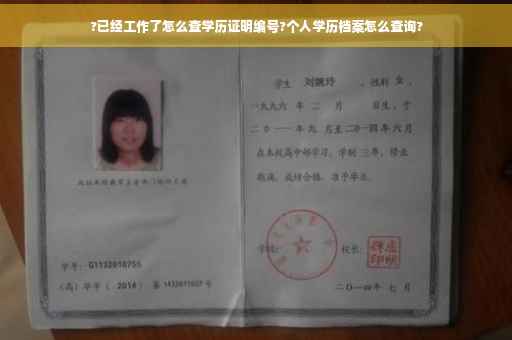 ?已经工作了怎么查学历证明编号?个人学历档案怎么查询?
学生 刘婉玲 ，性别 女 ，
一九九六 年 二 月 日生，于
二〇一一 年九 月至二〇一四年 六月
在本校高中部学习，学制 三年，修业
期满，成绩合格，准予毕业。
学号： G1132010755
(高) 毕字 ( 2014 ) 第 1432011027 号
学校：
校长：
二〇一四年 七 月